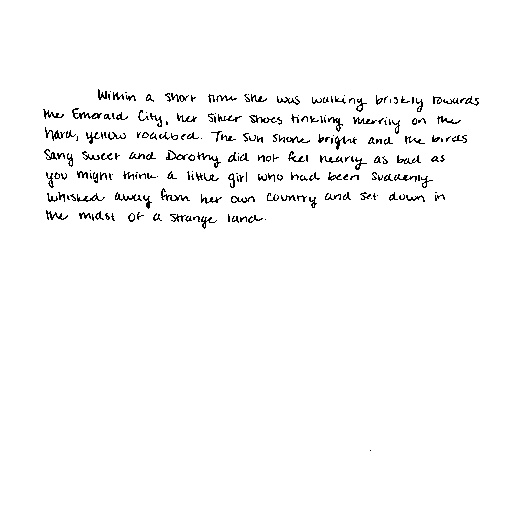 Within a short time she was walking briskly towards
the Emerald City, her Silver Shoes tinkling merrily on the
hard, yellow roadbed. The sun shone bright and the birds
sang sweet and Dorothy did not feel nearly as bad as
you might think a little girl who had been suddenly
whisked away from her own country and set down in
the midst of a strange land.